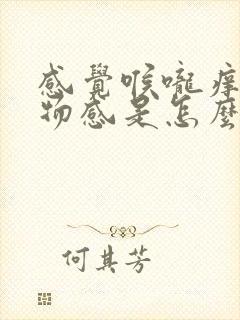 感覺喉嚨痒
物感是怎麼
何其芳